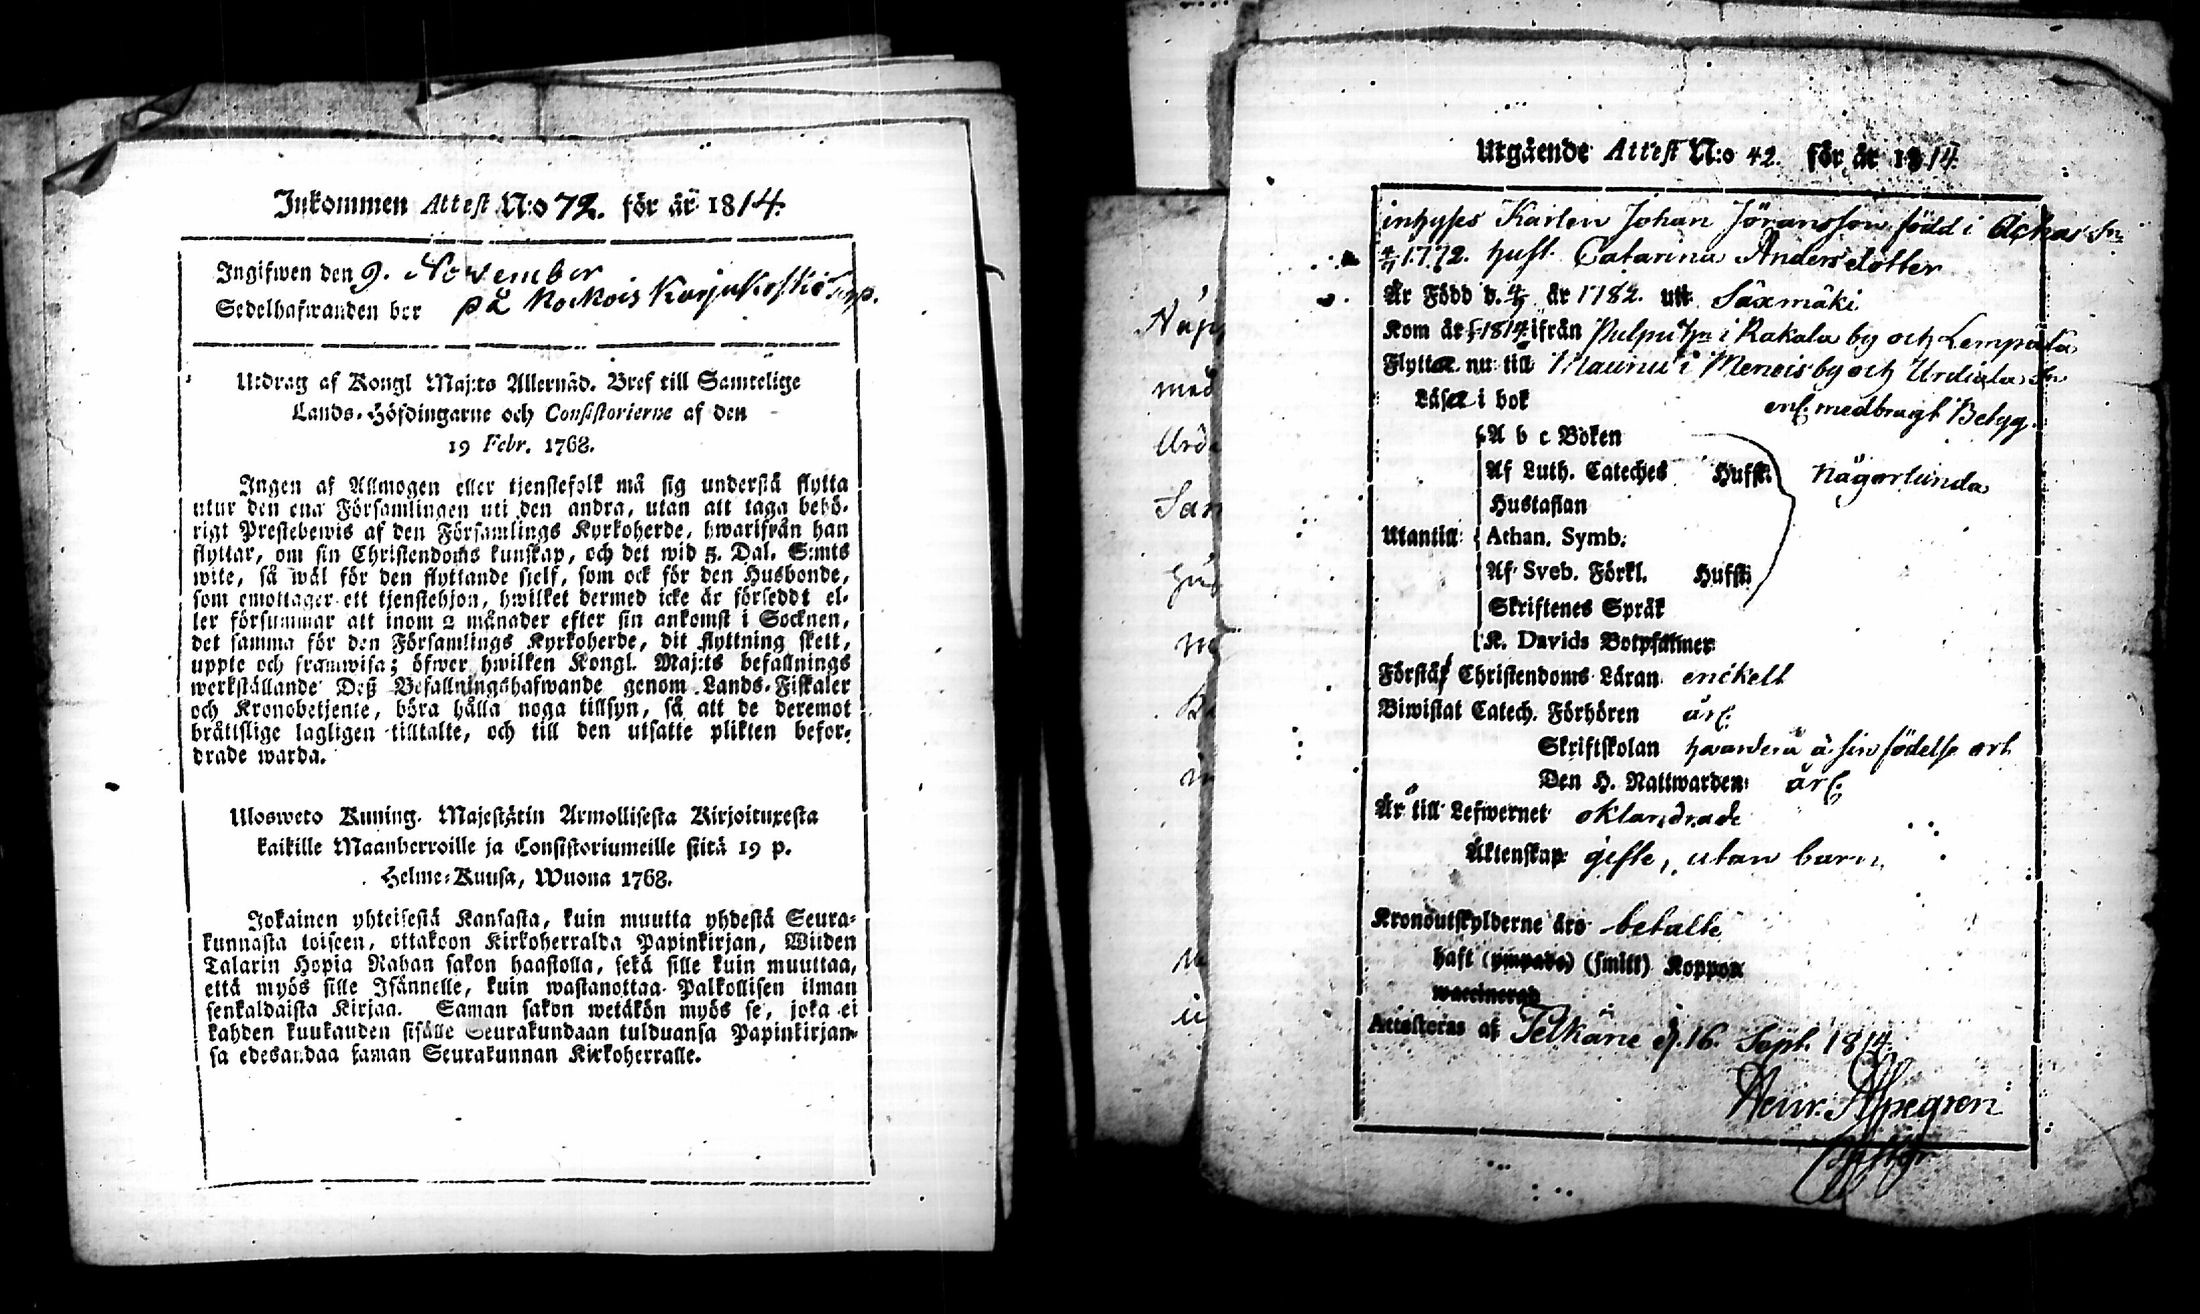 Inkommen Attest N:o 72. för år 1814.
Ingifwen den 9. November
Sedelhafwanden bor på Kockois Karjukoski
Utdrag af Kongl Maj:ts Allernåd. Bref till Samtelige
Lands-Höfdingarne och Consistorierne af den
19 Febr. 1768.
Ingen af Allmogen eller tjenstefolk må sig understå flytta
utur den ena Församlingen uti den andra, utan att taga behö-
rigt Prestebewis af den Församlings Kyrkoherde, hwarifrån han
flyttar, om sin Christendoms kunskap, och det wid 5. Dal. S:mts
wite, så wäl för den flyttande sjelf, som ock för den Husbonde,
som emottager ett tjenstehjon, hwilket dermed icke är försedt el-
ler försummar att inom 2 månader efter sin ankomst i Socknen,
det samma för den Församlings Kyrkoherde, dit flyttning skett,
uppte och framwisa; öfwer hwilken Kongl. Maj:ts befallnings
werkställande Deß Befallningshafwande genom Lands-Fiskaler
och Kronobetjente, böra hålla noga tillsyn, så att de deremot
bråttslige lagligen tilltalte, och till den utsatte plikten befor-
drade warda.
Ulosweto Kuning. Majestätin Armollisesta Kirjoituxesta
kaikille Maanherroille ja Consistoriumeille siitä 19 p.
Helme-Kuusa, Wuona 1768.
Jokainen yhteisestä Kansasta, kuin muutta yhdestä Seura-
kunnasta toiseen, ottakoon Kirkoherralda Papinkirjan, Wiiden
Talarin Hopia Rahan sakon haastolla, sekä sille kuin muuttaa,
että myös sille Isännelle, kuin wastanottaa Palkollisen ilman
senkaldaista Kirjaa. Saman sakon wetäkön myös se, joka ei
kahden kuukauden sisälle Seurakundaan tulduansa Papinkirjan-
sa edesandaa saman Seurakunnan Kirkoherralle.
Utgående Attest N:o 42. för år 1814.
inhyses Karlen Johan Jöransson född i Ackas Sn
1772. hust. Catarina Andersdotter
Är Född d. 4/9 år 1782. uti Säxmäki
Kom år 1814 ifrån Pulpu i Rakala by och Lempäla
Flytta nu till Maunu i Menois by och Urdiala Sn
Läsa i bok enl. medbragt Betyg.
A b c Boken
Af Luth. Cateches Hufst. någorlunda
Hustaflan
Utantill Athan. Symb.
Af Sveb. Förkl. Hufst.
Skriftenes Språk
K. Davids Botpsalmer
Förstå Christendoms Läran enckelt
Biwistat Catech. Förhören årl.
Skriftskolan hvardera å sin födelse ort
Den H. Nattwarden årl.
Är till Lefwernet oklandrade
Äktenskap gifte, utan barn
Kronoutskylderne äro betalte
haft (ympade) (smitt) Koppor
waccinerad
Attesteras af Pelkäne d. 16. Sept. 1814.
Henr. Alpegren